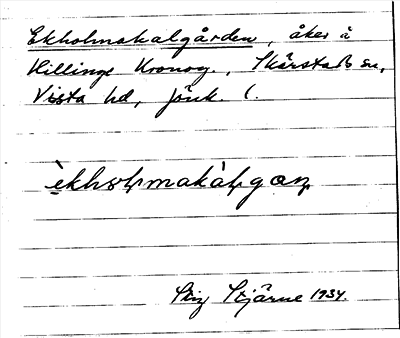 Ekholmakalgården, åker å
Hillinge Kronog., Skärstads sn,
Vista hd, Jönk. l.
èkhoḷmakàḷgaṇ
Stig Stjärne 1934.